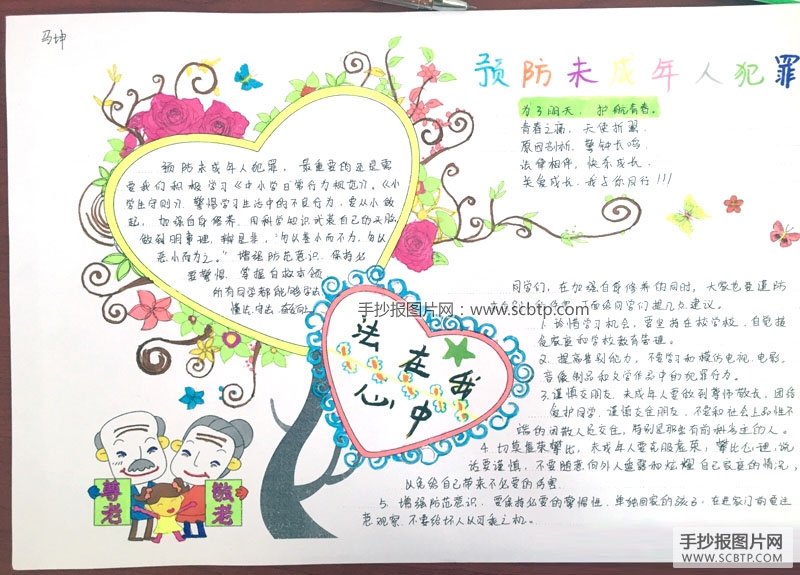 马坤
预防未成年人犯罪
为了明天，护航青春。
青春之痛，天使折翼，
原因剖析，警钟长鸣，
法律相伴，快乐成长，
关爱成长，我与你同行!!!
预防未成年人犯罪，最重要的还是需
要我们积极学习《中小学日常行为规范》、《小
学生守则》，警惕学习生活中的不良行为，要从小做
起，加强自身修养，用科学知识武装自己的头脑，
做到明事理，辨是非，“勿以善小而不为，勿以
恶小而为之。”增强防范意识，保持必
要警惕，掌握自救本领
所有同学都能够学法
懂法、守法
法在我
心中
手抄报图片网：www.scbtp.com
同学们，在加强自身修养的同时，大家也要谨防
同学们提几点建议。
1.珍惜学习机会，要坚持在校学校，自觉接
受家庭和学校教育管理。
2.提高鉴别能力，不要学习和模仿电视、电影、
音像制品和文学作品中的犯罪行为。
3.谨慎交朋友，未成年人要做到尊师敬长，团结
爱护同学，谨慎交往朋友，不要和社会上品性不
端的闲散人员交往，特别是那些有前科劣迹的人。
4.切莫虚荣攀比，未成年人要克服虚荣，攀比心理，说
话要谨慎，不要随意向外人透露和炫耀自己家庭的情况，
以免给自己带来不必要的伤害
5.增强防范意识，要保持必要的警惕性，单独回家的孩子，在进家门前要注
意观察，不要给坏人以可乘之机。
尊老
敬老
手抄报图片网
WWW.SCBTP.COM